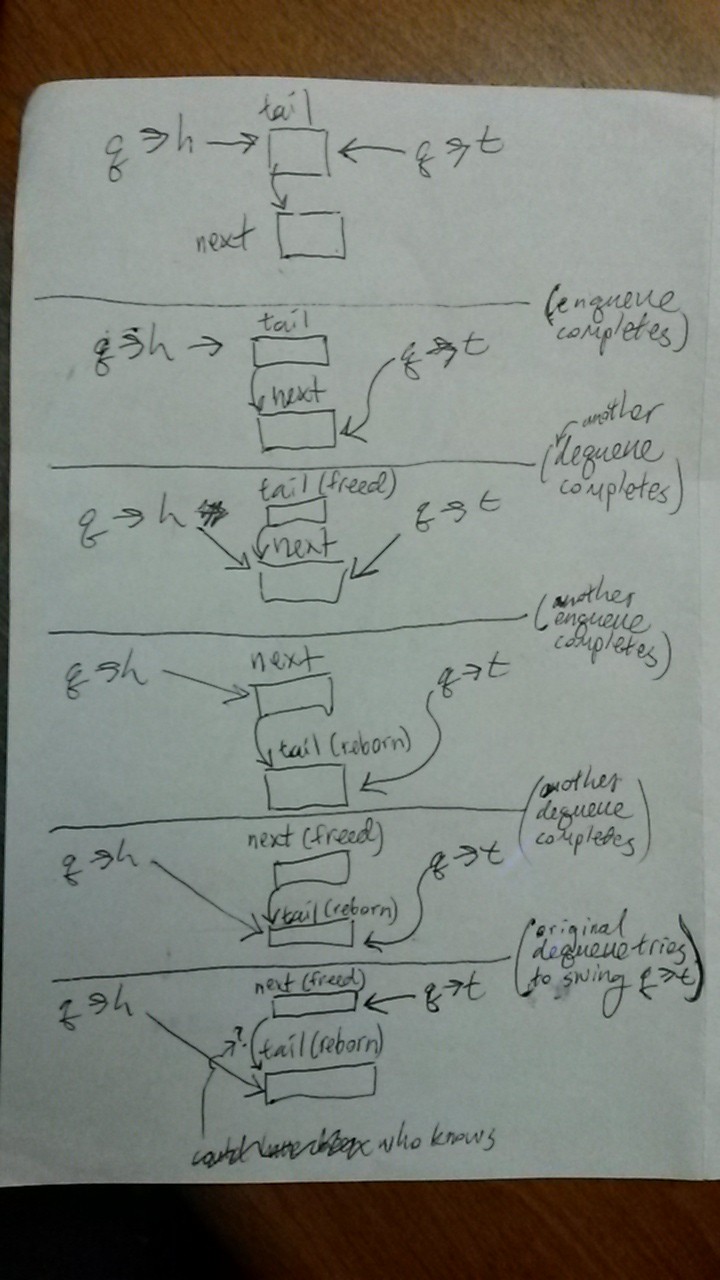 tail
q→h → ← q→t
next
(enqueue
completes)
tail
q→h → q→t
next
another
(dequeue
completes)
tail (freed)
q→h q→t
next
(another
enqueue
completes)
next
q→h q→t
tail (reborn)
(another
dequeue
completes)
next (freed)
q→h q→t
tail (reborn)
(original
dequeue tries
to swing q→t)
next (freed)
q→h ← q→t
→? tail (reborn)
who knows